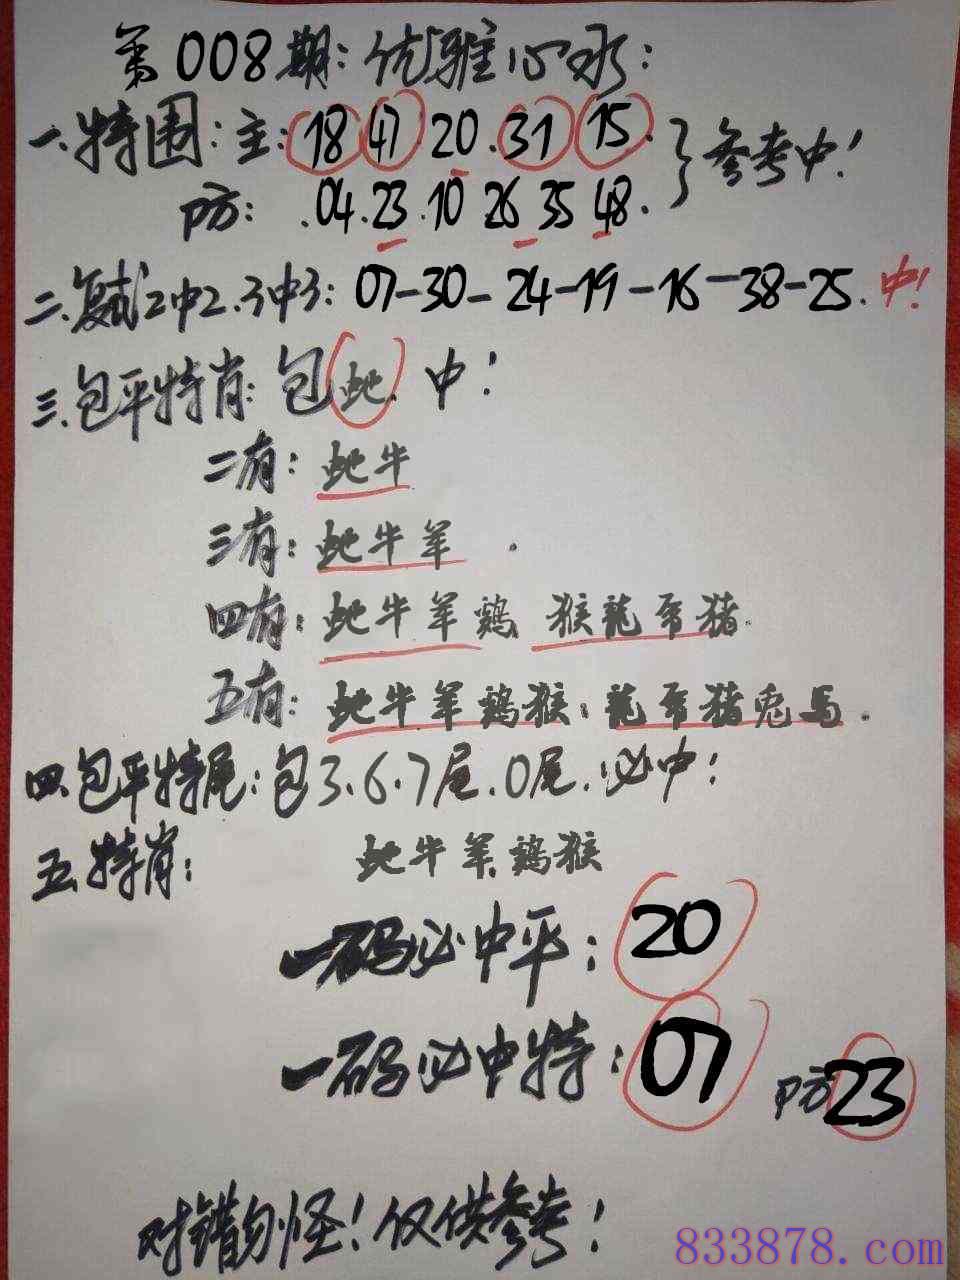 第008期:优雅心水:
一.特围:主:18 47 20.31 15.
防:.04.23.10 26 35 48.
参考中!
二.复式2中2.3中3:07-30-24-19-16-38-25.中!
三.包平特肖:包蛇.中!
二有:蛇牛
三有:蛇牛羊.
四有:蛇牛羊鷄 猴龍 猪.
五有:蛇牛羊鷄猴:龍 猪兎馬.
四.包平特尾:包3.6.7尾.0尾.必中!
五.特肖: 蛇牛羊.鷄猴
一码必中平:20
一码必中特:07 防23
对错勿怪!仅供参考!
833878.com